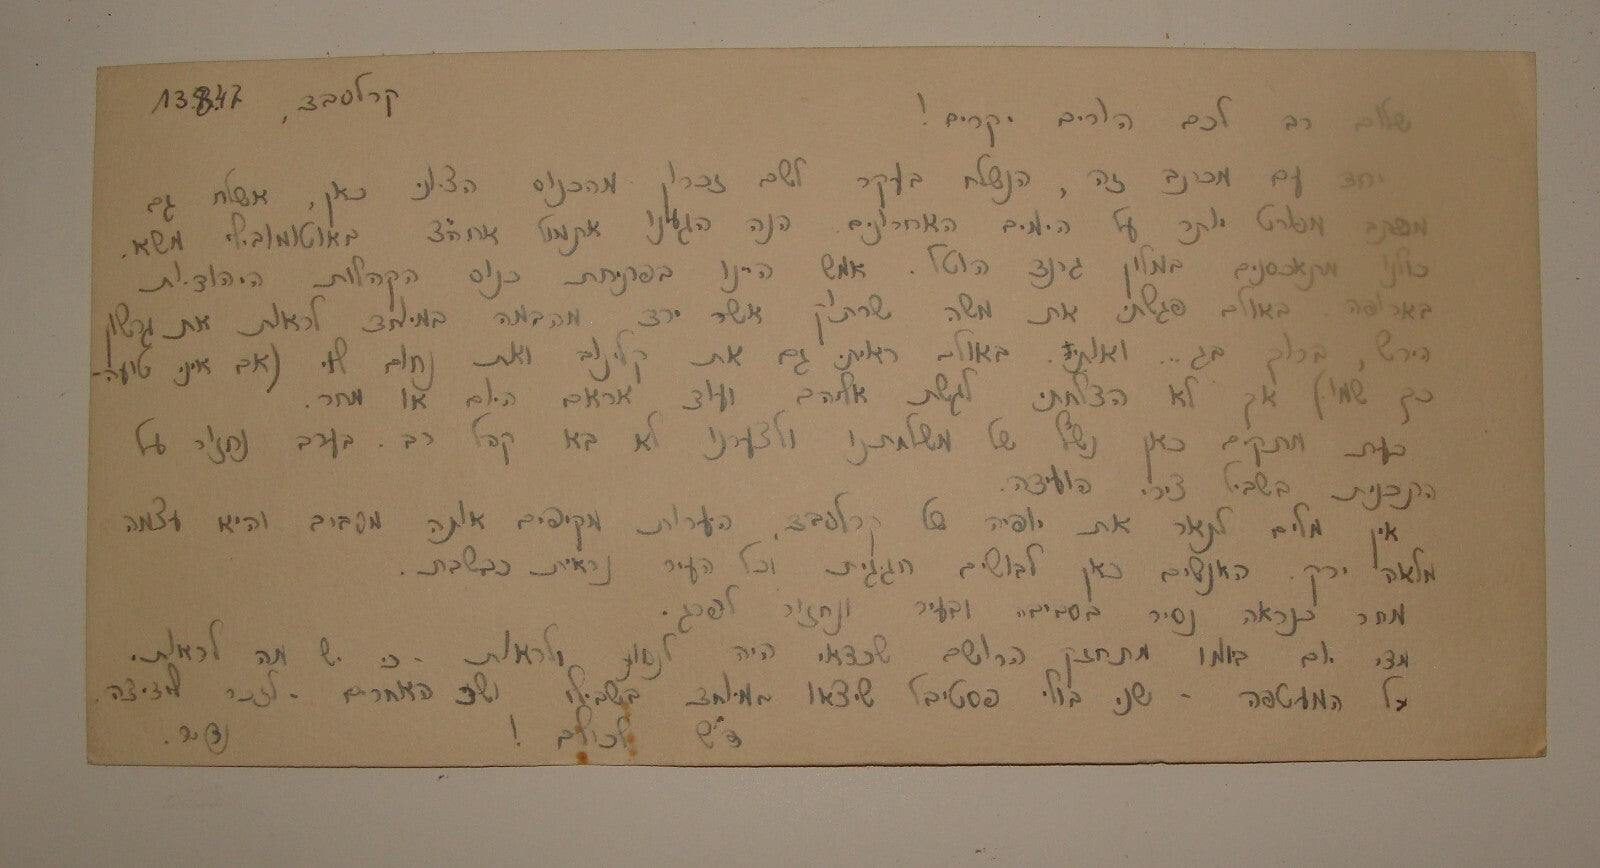 קרלסבד, 13.8.47
שלום רב לכם הורים יקרים!
יחד עם מכתב זה, הנשלח בעקר לשם זכרון מהכנוס הציוני כאן, אשלח גם
מכתב מפורט יותר על הימים האחרונים. הנה הגענו אתמול אחה"צ באוטומובילי משא.
כולנו מתאכסנים במלון גרנד הוטל. אמש היינו בפתיחת כנוס הקהלות היהודיות
באירופה. באולם פגשתי את משה שרתוק אשר ירד מהבמה במיוחד לראות את גרשון
הירש, ברוך בג... ואותי. באולם ראיתי גם את קלינוב ואת נחום (אם אינני טועה-
כך שמו) אך לא הצלחתי לגשת אליהם ועוד אראם היום או מחר.
כעת מתקיים כאן נשף של משלחתנו ולצערנו לא בא קהל רב. בערב נחזור על
התכנית בשביל צירי הועידה.
אין מלים לתאר את יופיה של קרלסבד, היערות מקיפים אותה מסביב והיא עצמה
מלאה ירק. האנשים כאן לבושים חגיגית וכל העיר נראית כבשבת.
מחר כנראה נסיר בסביבה ובעיר ונחזור לפרג.
מדי יום ביומו מתחזק הרושם שכדאי היה לנסוע ולראות - כי יש מה לראות.
על המעטפה - שני בולי פסטיבל שיצאו במיוחד בשבילי ושני האחרים - לזכר לידיצה.
ד"ש לכולם! נדיר.